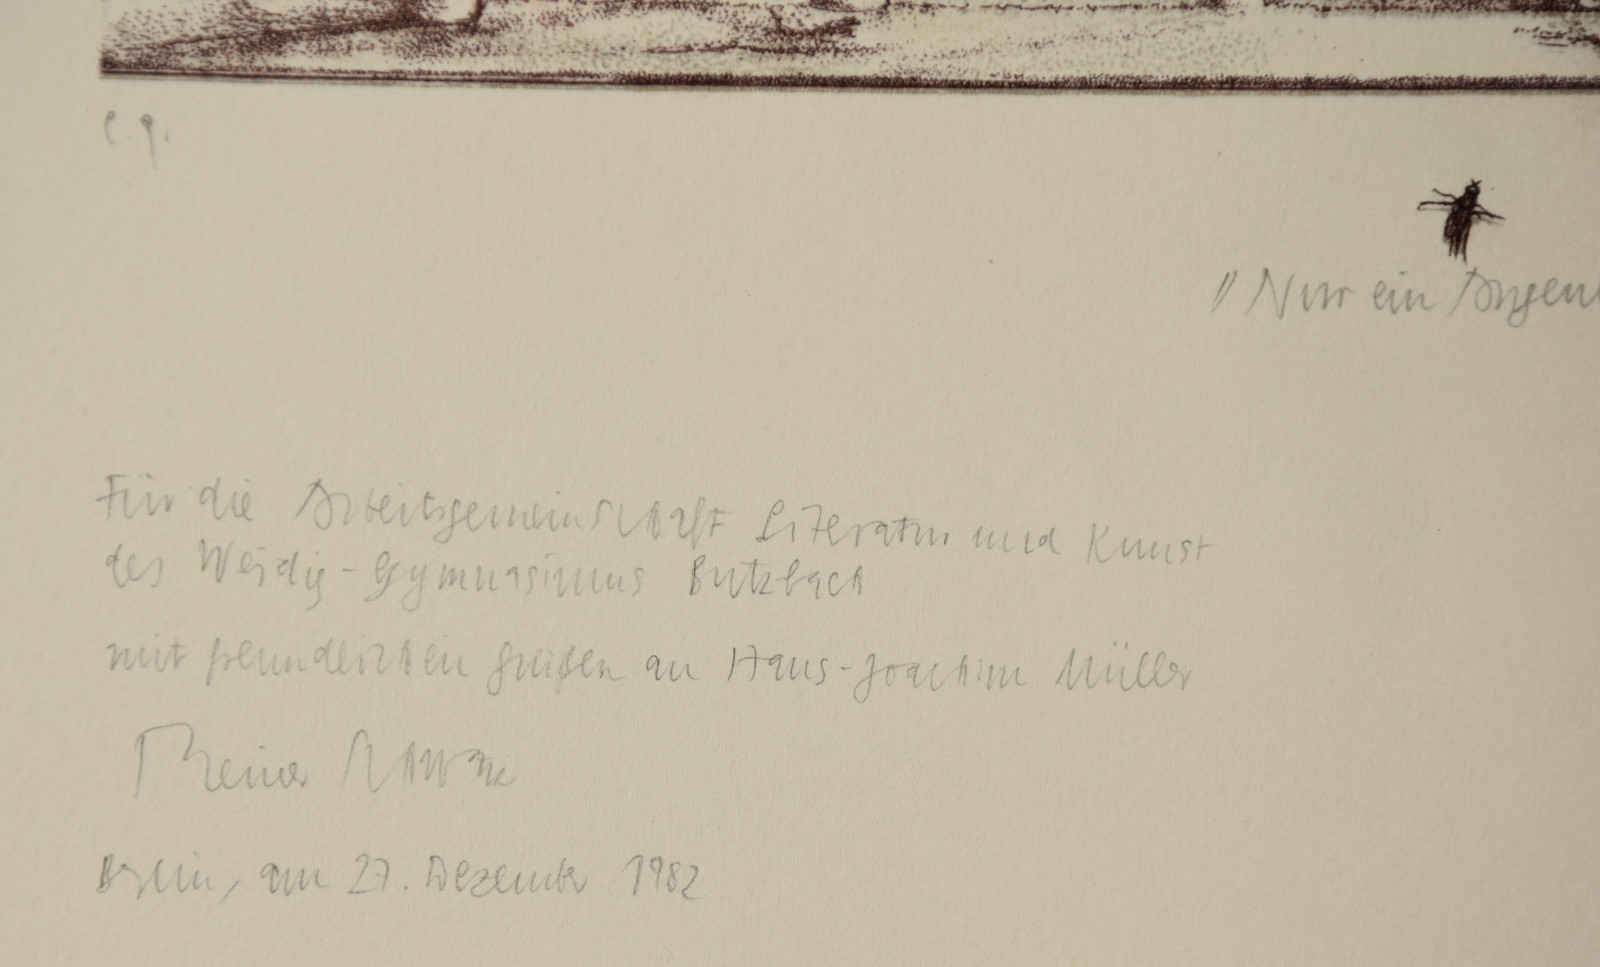 e.a.
"Nur ein Augen
Für die Arbeitsgemeinschaft Literatur und Kunst
des Weidig-Gymnasiums Butzbach
mit freundlichen Grüßen an Hans-Joachim Müller
Reiner Schwarz
Berlin, am 27. Dezember 1982